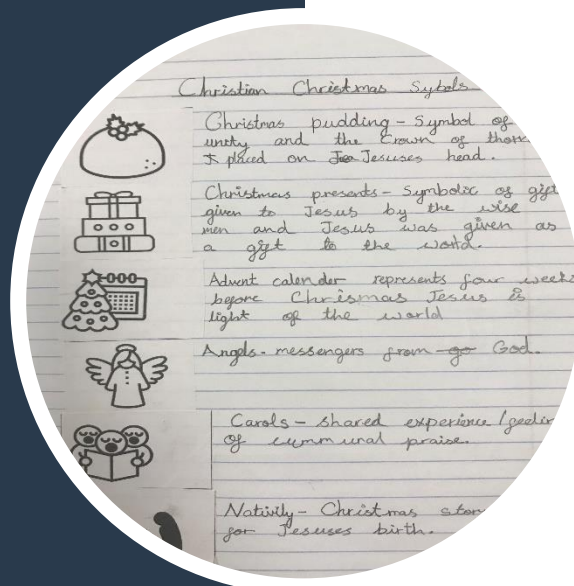 Christian Christmas Sybols
Christmas pudding - Symbol of
unity and the Crown of thorn
placed on Jesuses head.
Christmas presents - Symbolic of gift
given to Jesus by the wise
men and Jesus was given as
a gift to the world.
Advent calender represents four weeks
before Chrismas Jesus is
light of the world
Angels - messengers from go God.
Carols - shared experience /
of cummunal praise.
Nativity - Christmas stor
for Jesuses birth.